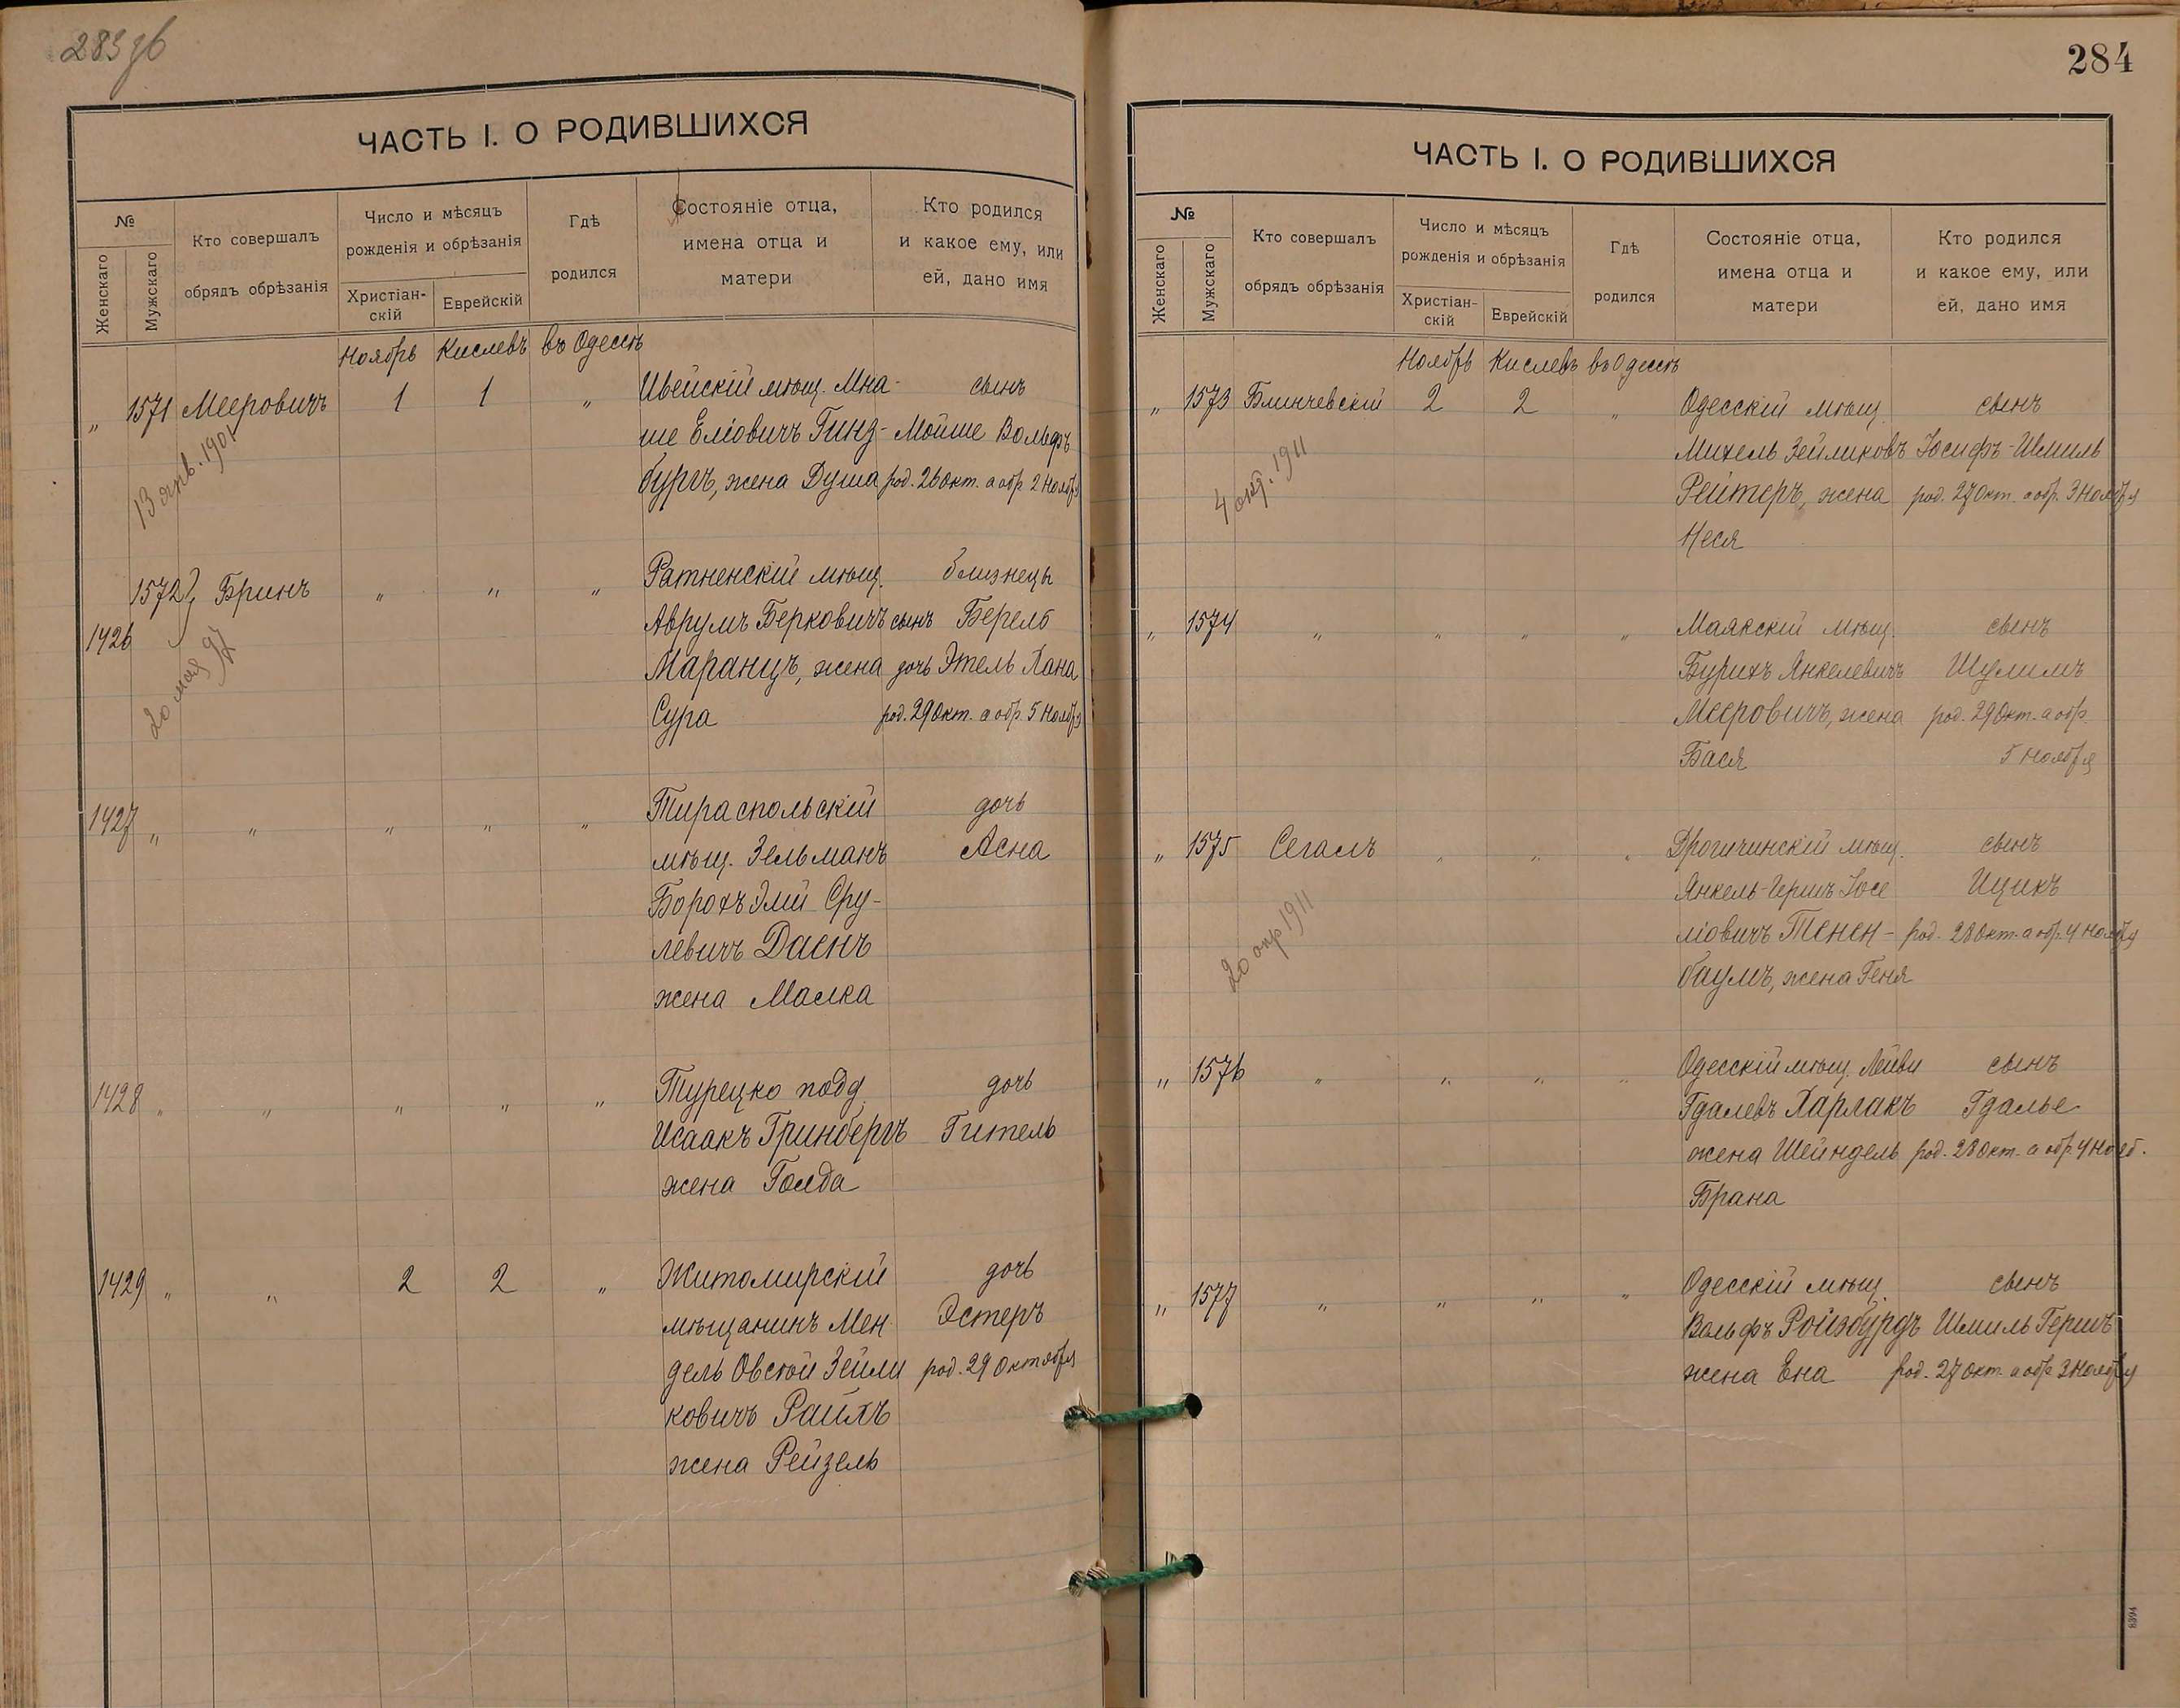 283 об
ЧАСТЬ I. О РОДИВШИХСЯ
№
Женскаго
Мужскаго
Кто совершалъ
обрядъ обрѣзанія
Число и мѣсяцъ
рожденія и обрѣзанія
Христіан-
скій
Еврейскій
Гдѣ
родился
Состояніе отца,
имена отца и
матери
Кто родился
и какое ему, или
ей, дано имя
Ноябрь Кислевъ въ Одессѣ
„ 1571 Мееровичъ 1 1 „ Ивейскій мѣщ. Мна- сынъ
ше Еліовичъ Гинз- Мойше Вольфъ
бургъ, жена Душа род. 26 окт. а обр. 2 Ноября
13 янв. 1901
1572 Бринъ „ „ „ Ратненскій мѣщ. близнецы
1426 Аврумъ Берковичъ сынъ Берель
Маранцъ, жена дочь Этель Хана
Сура род. 29 Окт. а обр. 5 Ноября
20 мая 97
1427 „ „ „ „ „ Тираспольскій дочь
мѣщ. Зельманъ Асна
Борохъ Эли Сру-
левичъ Даенъ
жена Малка
1428 „ „ „ „ „ Турецко подд. дочь
Исаакъ Гринбергъ Гитель
жена Голда
1429 „ „ 2 2 „ Житомирскій дочь
мѣщанинъ Мен- Эстеръ
дель Овсѣй Зейли род. 29 Октября
ковичъ Райхъ
жена Рейзель
284
ЧАСТЬ I. О РОДИВШИХСЯ
№
Женскаго
Мужскаго
Кто совершалъ
обрядъ обрѣзанія
Число и мѣсяцъ
рожденія и обрѣзанія
Христіан-
скій
Еврейскій
Гдѣ
родился
Состояніе отца,
имена отца и
матери
Кто родился
и какое ему, или
ей, дано имя
Ноябрь Кислевъ въ Одессѣ
„ 1573 Блинчевскій 2 2 „ Одесскій мѣщ. сынъ
Михель Зейликовъ Іосифъ-Шмиль
Рейтеръ, жена род. 27 Окт. а обр. 3 Ноября
Неся
4 окт. 1911
„ 1574 „ „ „ „ Маякскій мѣщ. сынъ
Бурихъ Янкелевичъ Шулимъ
Мееровичъ, жена род. 29 Окт. а обр.
Бася 5 Ноября
„ 1575 Сегалъ „ „ „ Дрогичинскій мѣщ. сынъ
Янкель-Гершъ Іосе Ицикъ
ліовичъ Тенен- род. 28 окт. а обр. 4 Ноября
баумъ, жена Геня
20 апр 1911
„ 1576 „ „ „ „ Одесскій мѣщ. Лейви сынъ
Гдалевъ Харлакъ Гдалье
жена Шейндель род. 28 Окт. а обр. 4 Нояб.
Брана
„ 1577 „ „ „ „ Одесскій мѣщ. сынъ
Вольфъ Ройзбурдъ Шмиль Гершъ
жена Ена род. 27 Окт. а обр. 3 Ноября
8394